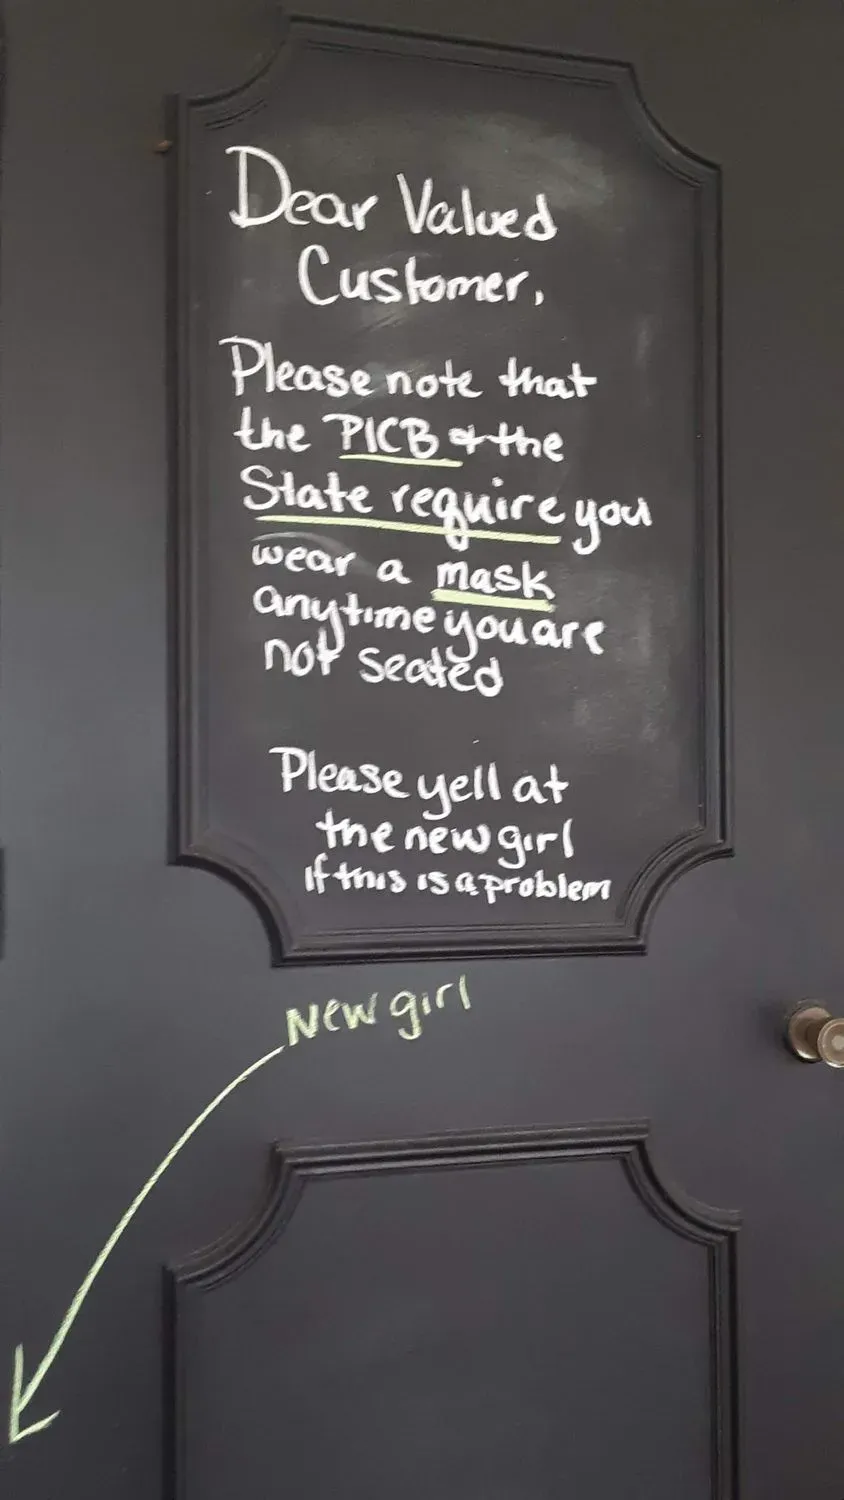 Dear Valued
Customer,
Please note that
the PICB & the
State require you
wear a mask
anytime you are
not seated
Please yell at
the new girl
if this is a problem
New girl